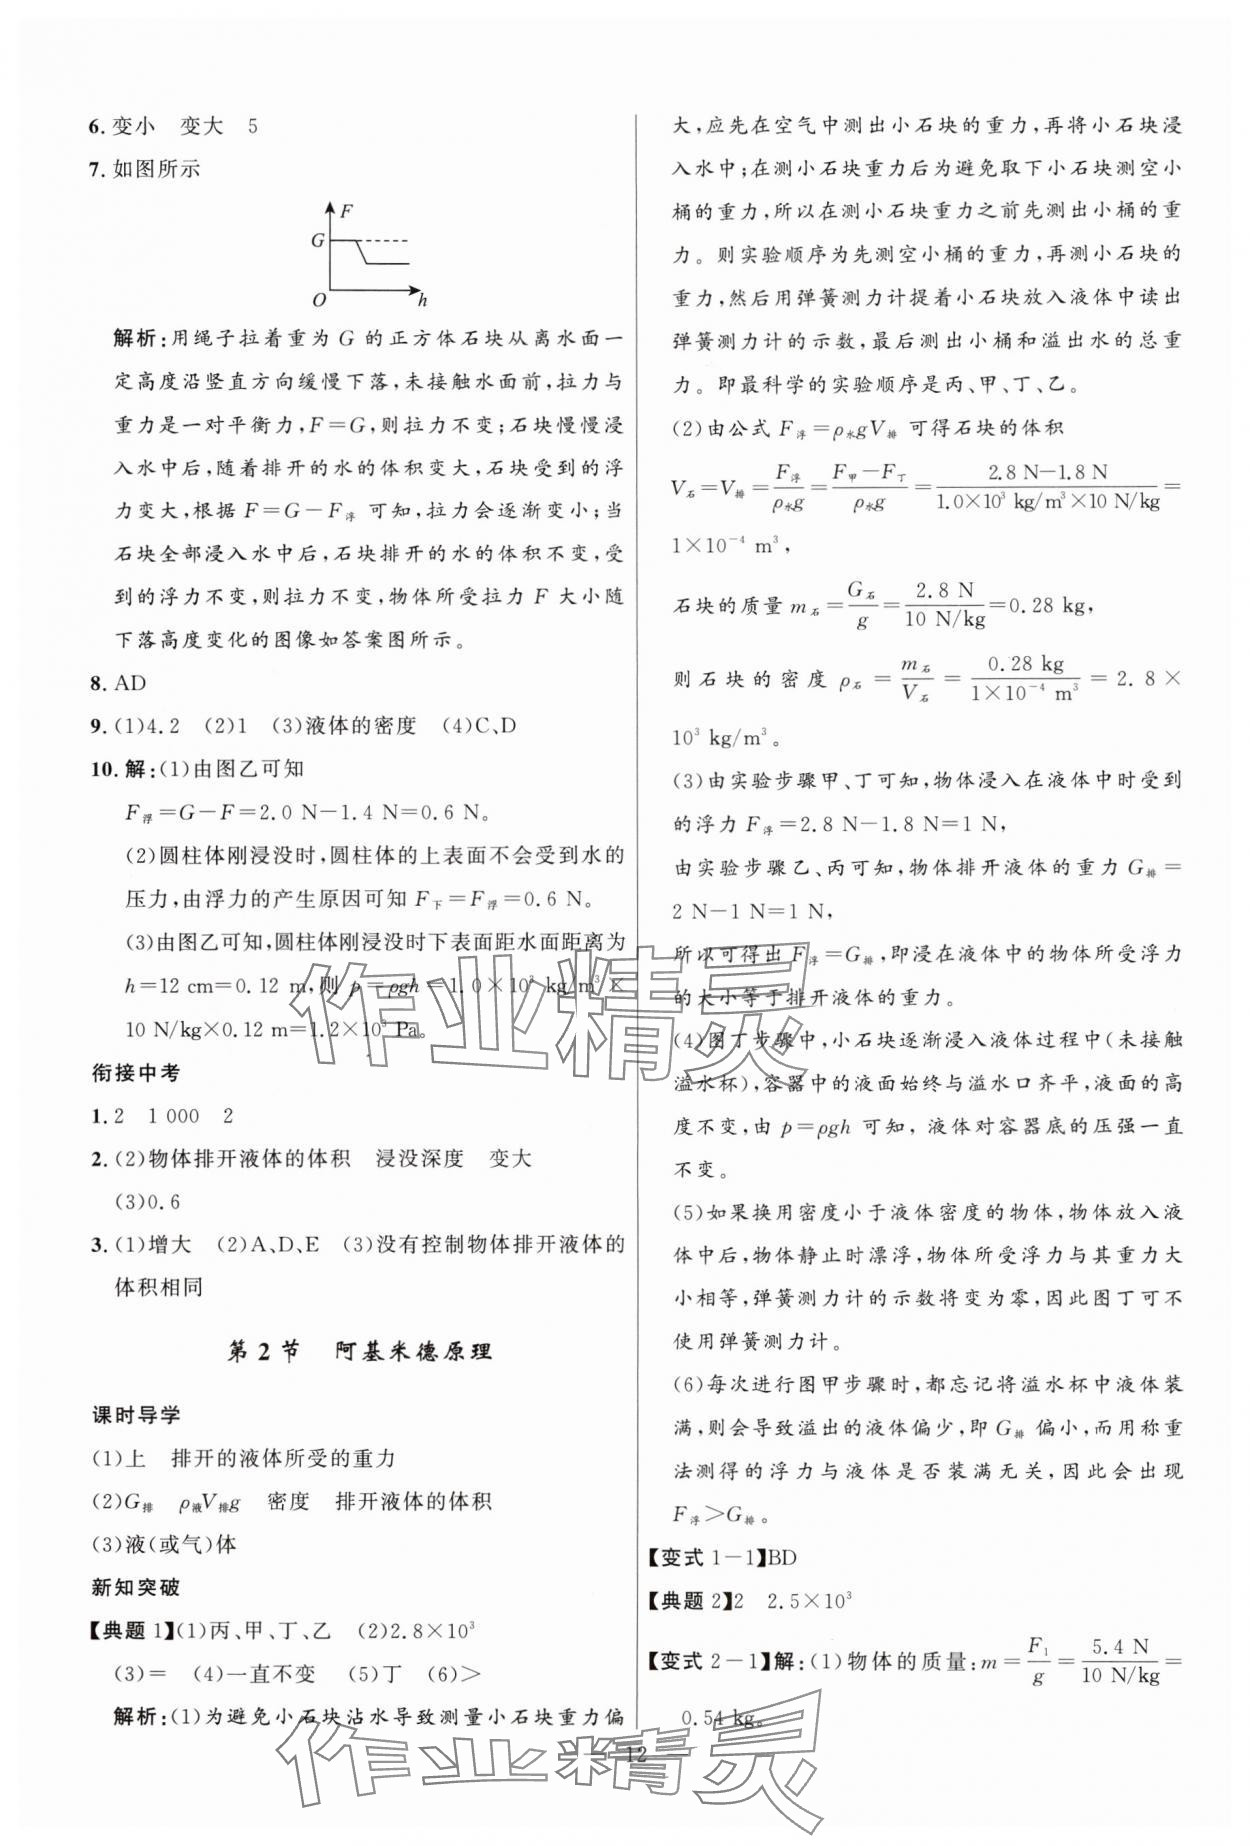 6. 变小　变大　5
7. 如图所示
F
G
O
h
解析:用绳子拉着重为 G 的正方体石块从离水面一
定高度沿竖直方向缓慢下落,未接触水面前,拉力与
重力是一对平衡力,F=G,则拉力不变;石块慢慢浸
入水中后,随着排开的水的体积变大,石块受到的浮
力变大,根据 F=G-F浮 可知,拉力会逐渐变小;当
石块全部浸入水中后,石块排开的水的体积不变,受
到的浮力不变,则拉力不变,物体所受拉力 F 大小随
下落高度变化的图像如答案图所示。
8. AD
9. (1)4.2　(2)1　(3)液体的密度　(4)C、D
10. 解:(1)由图乙可知
F浮=G-F=2.0 N-1.4 N=0.6 N。
(2)圆柱体刚浸没时,圆柱体的上表面不会受到水的
压力,由浮力的产生原因可知 F下=F浮=0.6 N。
(3)由图乙可知,圆柱体刚浸没时下表面距水面距离为
h=12 cm=0.12 m,则 p=ρgh=1.0×10³ kg/m³×
10 N/kg×0.12 m=1.2×10³ Pa。
衔接中考
1. 2　1 000　2
2. (2)物体排开液体的体积　浸没深度　变大
(3)0.6
3. (1)增大　(2)A、D、E　(3)没有控制物体排开液体的
体积相同
第 2 节　阿基米德原理
课时导学
(1)上　排开的液体所受的重力
(2)G排　ρ液V排g　密度　排开液体的体积
(3)液(或气)体
新知突破
【典题 1】(1)丙、甲、丁、乙　(2)2.8×10³
(3)=　(4)一直不变　(5)丁　(6)>
解析:(1)为避免小石块沾水导致测量小石块重力偏
大,应先在空气中测出小石块的重力,再将小石块浸
入水中;在测小石块重力后为避免取下小石块测空小
桶的重力,所以在测小石块重力之前先测出小桶的重
力。则实验顺序为先测空小桶的重力,再测小石块的
重力,然后用弹簧测力计提着小石块放入液体中读出
弹簧测力计的示数,最后测出小桶和溢出水的总重
力。即最科学的实验顺序是丙、甲、丁、乙。
(2)由公式 F浮=ρ水gV排 可得石块的体积
V石=V排=F浮/ρ水g=(F甲-F丁)/ρ水g=(2.8 N-1.8 N)/(1.0×10³ kg/m³×10 N/kg)=
1×10⁻⁴ m³,
石块的质量 m石=G石/g=2.8 N/10 N/kg=0.28 kg,
则石块的密度 ρ石=m石/V石=0.28 kg/1×10⁻⁴ m³=2.8×
10³ kg/m³。
(3)由实验步骤甲、丁可知,物体浸入在液体中时受到
的浮力 F浮=2.8 N-1.8 N=1 N,
由实验步骤乙、丙可知,物体排开液体的重力 G排=
2 N-1 N=1 N,
所以可得出 F浮=G排,即浸在液体中的物体所受浮力
的大小等于排开液体的重力。
(4)图丁步骤中,小石块逐渐浸入液体过程中(未接触
溢水杯),容器中的液面始终与溢水口齐平,液面的高
度不变,由 p=ρgh 可知,液体对容器底的压强一直
不变。
(5)如果换用密度小于液体密度的物体,物体放入液
体中后,物体静止时漂浮,物体所受浮力与其重力大
小相等,弹簧测力计的示数将变为零,因此图丁可不
使用弹簧测力计。
(6)每次进行图甲步骤时,都忘记将溢水杯中液体装
满,则会导致溢出的液体偏少,即 G排 偏小,而用称重
法测得的浮力与液体是否装满无关,因此会出现
F浮>G排。
【变式 1-1】BD
【典题 2】2　2.5×10³
【变式 2-1】解:(1)物体的质量:m=F₁/g=5.4 N/10 N/kg=
0.54 kg。
12
作业精灵
作业精灵